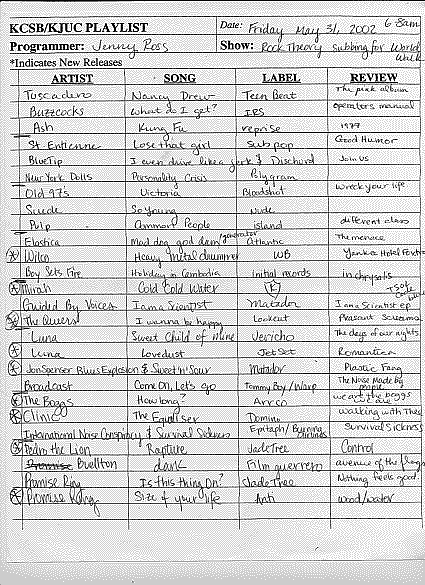 KCSB/KJUC PLAYLIST Date: Friday May 31, 2002 6-8am
Programmer: Jenny Ross Show: Rock Theory subbing for World Walk
*Indicates New Releases
ARTIST SONG LABEL REVIEW
Tuscadero Nancy Drew Teen Beat The pink album
Buzzcocks What do I get? IRS operators manual
Ash Kung Fu reprise 1977
St. Entienne Lose that girl sub pop Good Humor
BlueTip I even drive like a jerk Dischord Join us
New York Dolls Personality Crisis Polygram
Old 97s Victoria Bloodshot wreck your life
Suede So young nude
Pulp Common People island different class
Elastica Mad dog god dam generator Atlantic The menace
* Wilco Heavy metal drummer WB Yankee Hotel Foxtrot
Boy Sets Fire Holiday in Cambodia initial records in chrysalis
* Mirah Cold Cold Water K
Guided By Voices I am a Scientist Matador I am a Scientist ep
* The Queers I wanna be happy Lookout Pleasant Screams
Luna Sweet Child of mine Jericho The days of our nights
* Luna Lovedust Jet Set Romantica
* Jon Spencer Blues Explosion Sweet 'n' Sour Matador Plastic Fang
Broadcast Come On, Let's go Tommy Boy/Warp The Noise Made by people
* The Boggs How long? Arrco we are the boggs we are
* Clinic The Equaliser Domino walking with Thee
International Noise Conspiracy Survival Sickness Epitaph/Burning airlines Survival Sickness
* Pedro the Lion Rapture JadeTree Control
Buellton dark Film guerrero avenue of the flags
Promise Ring Is this thing On? Jade Tree Nothing feels good
* Promise Ring Size of your life Anti wood/water